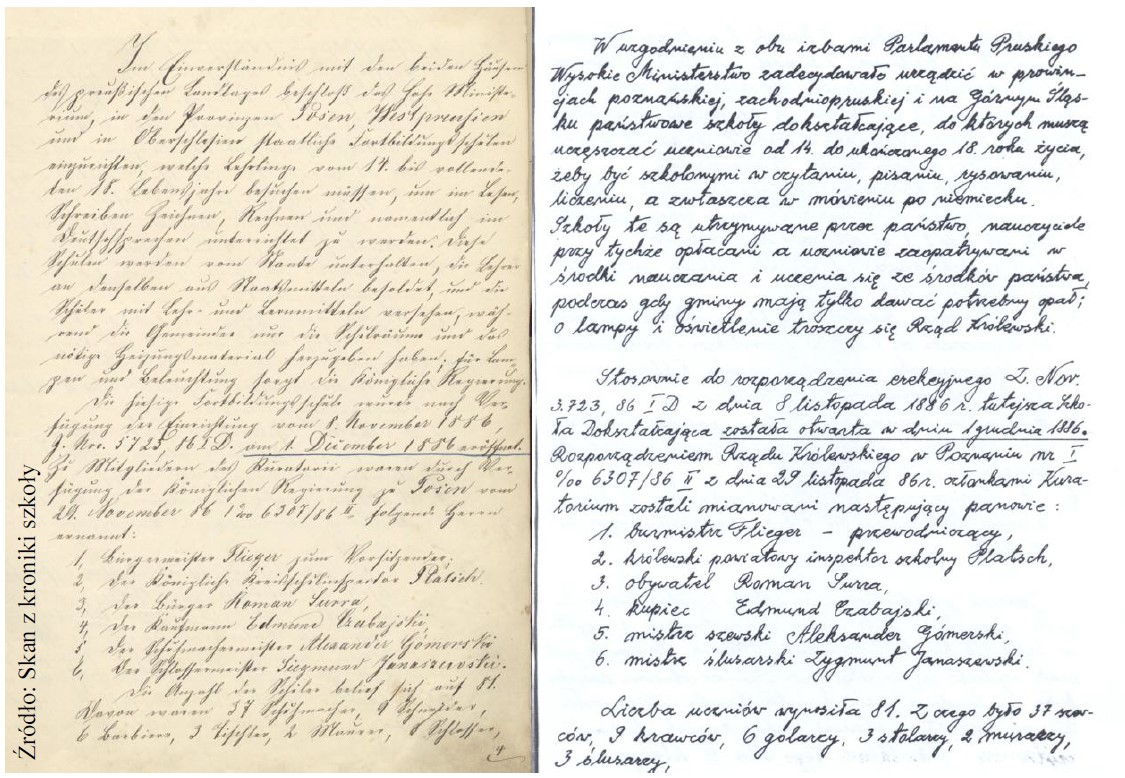 Im Einverständnis mit den beiden Häusern
des preußischen Landtages beschloß das Hohe Ministe-
rium, in den Provinzen Posen, Westpreussen
und in Oberschlesien staatliche Fortbildungsschulen
einzurichten, welche Lehrlinge vom 14. bis vollende-
ten 18. Lebensjahre besuchen müssen, um im Lesen,
Schreiben Zeichnen, Rechnen und namentlich im
Deutschsprechen unterrichtet zu werden. Diese
Schulen werden vom Staate unterhalten, die Lehrer
an denselben aus Staatsmitteln besoldet, und die
Schüler mit Lehr- und Lernmitteln versehen, wäh-
rend die Gemeinden nur die Schulräume und das
nötige Heizungsmaterial herzugeben haben; für Lam-
pen und Beleuchtung sorgt die Königliche Regierung.
Die hiesige Fortbildungsschule wurde nach Ver-
fügung der Einrichtung vom 8. November 1886,
am 1. Dezember 1886 eröffnet.
Zu Mitgliedern des Kuratorii waren durch Ver-
fügung der Königlichen Regierung zu Posen vom
29. November 86 6307/86 II folgende Herren
ernannt:
1, Bürgermeister Flieger zum Vorsitzenden,
2, der Königliche Kreisschulinspektor Platsch
3, der Bürger Roman Surra,
4, der Kaufmann Edmund Czabajski,
5, der Schuhmachermeister Alexander Gómerski
6, der Schlossermeister Siegmund Janaszewski.
Die Anzahl der Schüler belief sich auf 81.
Davon waren 37 Schuhmacher, 9 Schneider,
6 Barbiere, 3 Tischler, 2 Maurer, Schlosser,
4
Źródło: Skan z kroniki szkoły
W uzgodnieniu z obu izbami Parlamentu Pruskiego
Wysokie Ministerstwo zadecydowało urządzić w prowin-
cjach poznańskiej, zachodniopruskiej i na Górnym Śląs-
ku państwowe szkoły dokształcające, do których muszą
uczęszczać uczniowie od 14. do ukończonego 18. roku życia,
żeby być szkolonymi w czytaniu, pisaniu, rysowaniu,
liczeniu, a zwłaszcza w mówieniu po niemiecku.
Szkoły te są utrzymywane przez państwo, nauczyciele
przy tychże opłacani a uczniowie zaopatrywani w
środki nauczania i uczenia się ze środków państwa,
podczas gdy gminy mają tylko dawać potrzebny opał;
o lampy i oświetlenie troszczy się Rząd Królewski.
Stosownie do rozporządzenia erekcyjnego Z. Nov.
3.723, 86 I D z dnia 8 listopada 1886 r. tutejsza Szko-
ła Dokształcająca została otwarta w dniu 1 grudnia 1886.
Rozporządzeniem Rządu Królewskiego w Poznaniu nr I
%oo 6307/86 II z dnia 29 listopada 86r. członkami Kura-
torium zostali mianowani następujący panowie:
1. burmistrz Flieger – przewodniczący,
2. królewski powiatowy inspektor szkolny Platsch,
3. obywatel Roman Surra,
4. kupiec Edmund Czabajski,
5. mistrz szewski Aleksander Gómerski,
6. mistrz ślusarski Zygmunt Janaszewski.
Liczba uczniów wynosiła 81. Z czego było 37 szew-
ców, 9 krawców, 6 golarzy, 3 stolarzy, 2 murarzy,
3 ślusarzy,